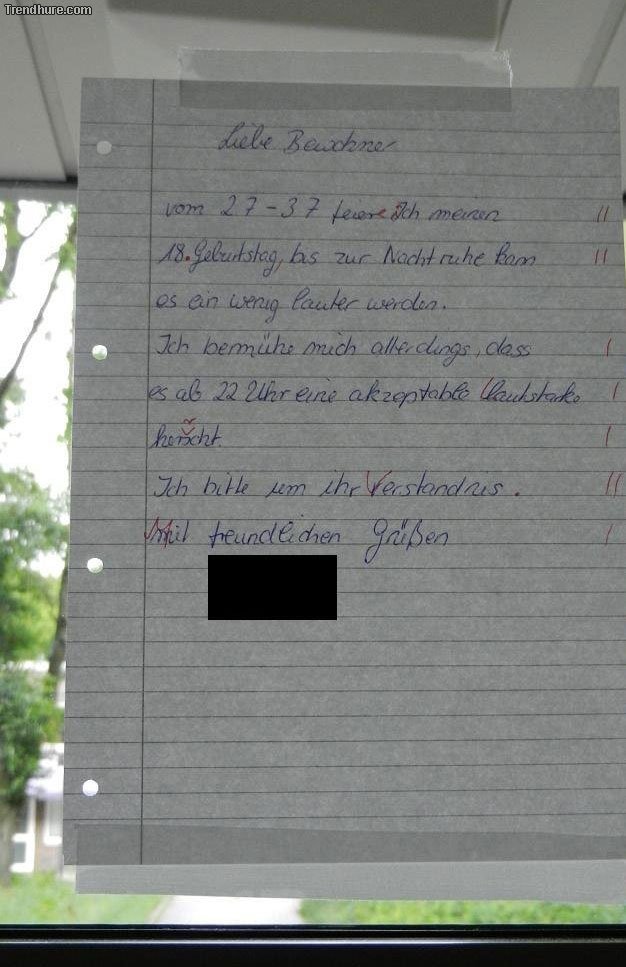 Trendhure.com
Liebe Bewohner
vom 27-37 feiere Ich meinen
18. Geburtstag, bis zur Nachtruhe kann
es ein wenig lauter werden.
Ich bemühe mich allerdings, dass
es ab 22 Uhr eine akzeptable Lautstärke
herscht.
Ich bitte um ihr Verständnis.
Mit freundlichen Grüßen